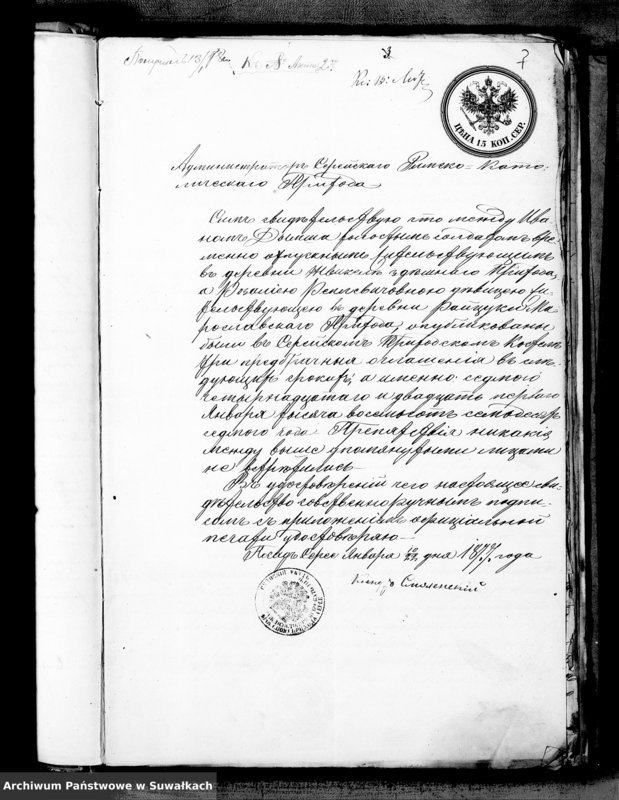 3
7
ЦѢНА 15 КОП. СЕР.
Администраторъ Серейскаго Римско-Като-
лическаго Прихода
Симъ свидѣтельствую что между Ива-
номъ холостымъ солдатомъ вре-
менно отпускнымъ
въ деревни здѣшняго Прихода,
а Розаліею дѣвицею жи-
тельствующею въ деревни Райцуки Ма-
рославскаго Прихода, опубликованы
были въ Серейскомъ Приходскомъ Костелѣ
три предбрачныя оглашенія въ слѣ-
дующихъ срокахъ, а именно: седмого
четырнадцатаго и двадцать перваго
Января тысяча восемьсотъ семьдесятъ
седмого года. Препятствія никакія
между выше упомянутыми лицами
не встрѣтились
Въ удостовѣреніи чего настоящее сви-
дѣтельство собственноручнымъ подпи-
сомъ съ приложеніемъ оффиціальной
печати удостовѣряю
Посадъ Серее Января дня 1877 года
Смоленскій
Archiwum Państwowe w Suwałkach